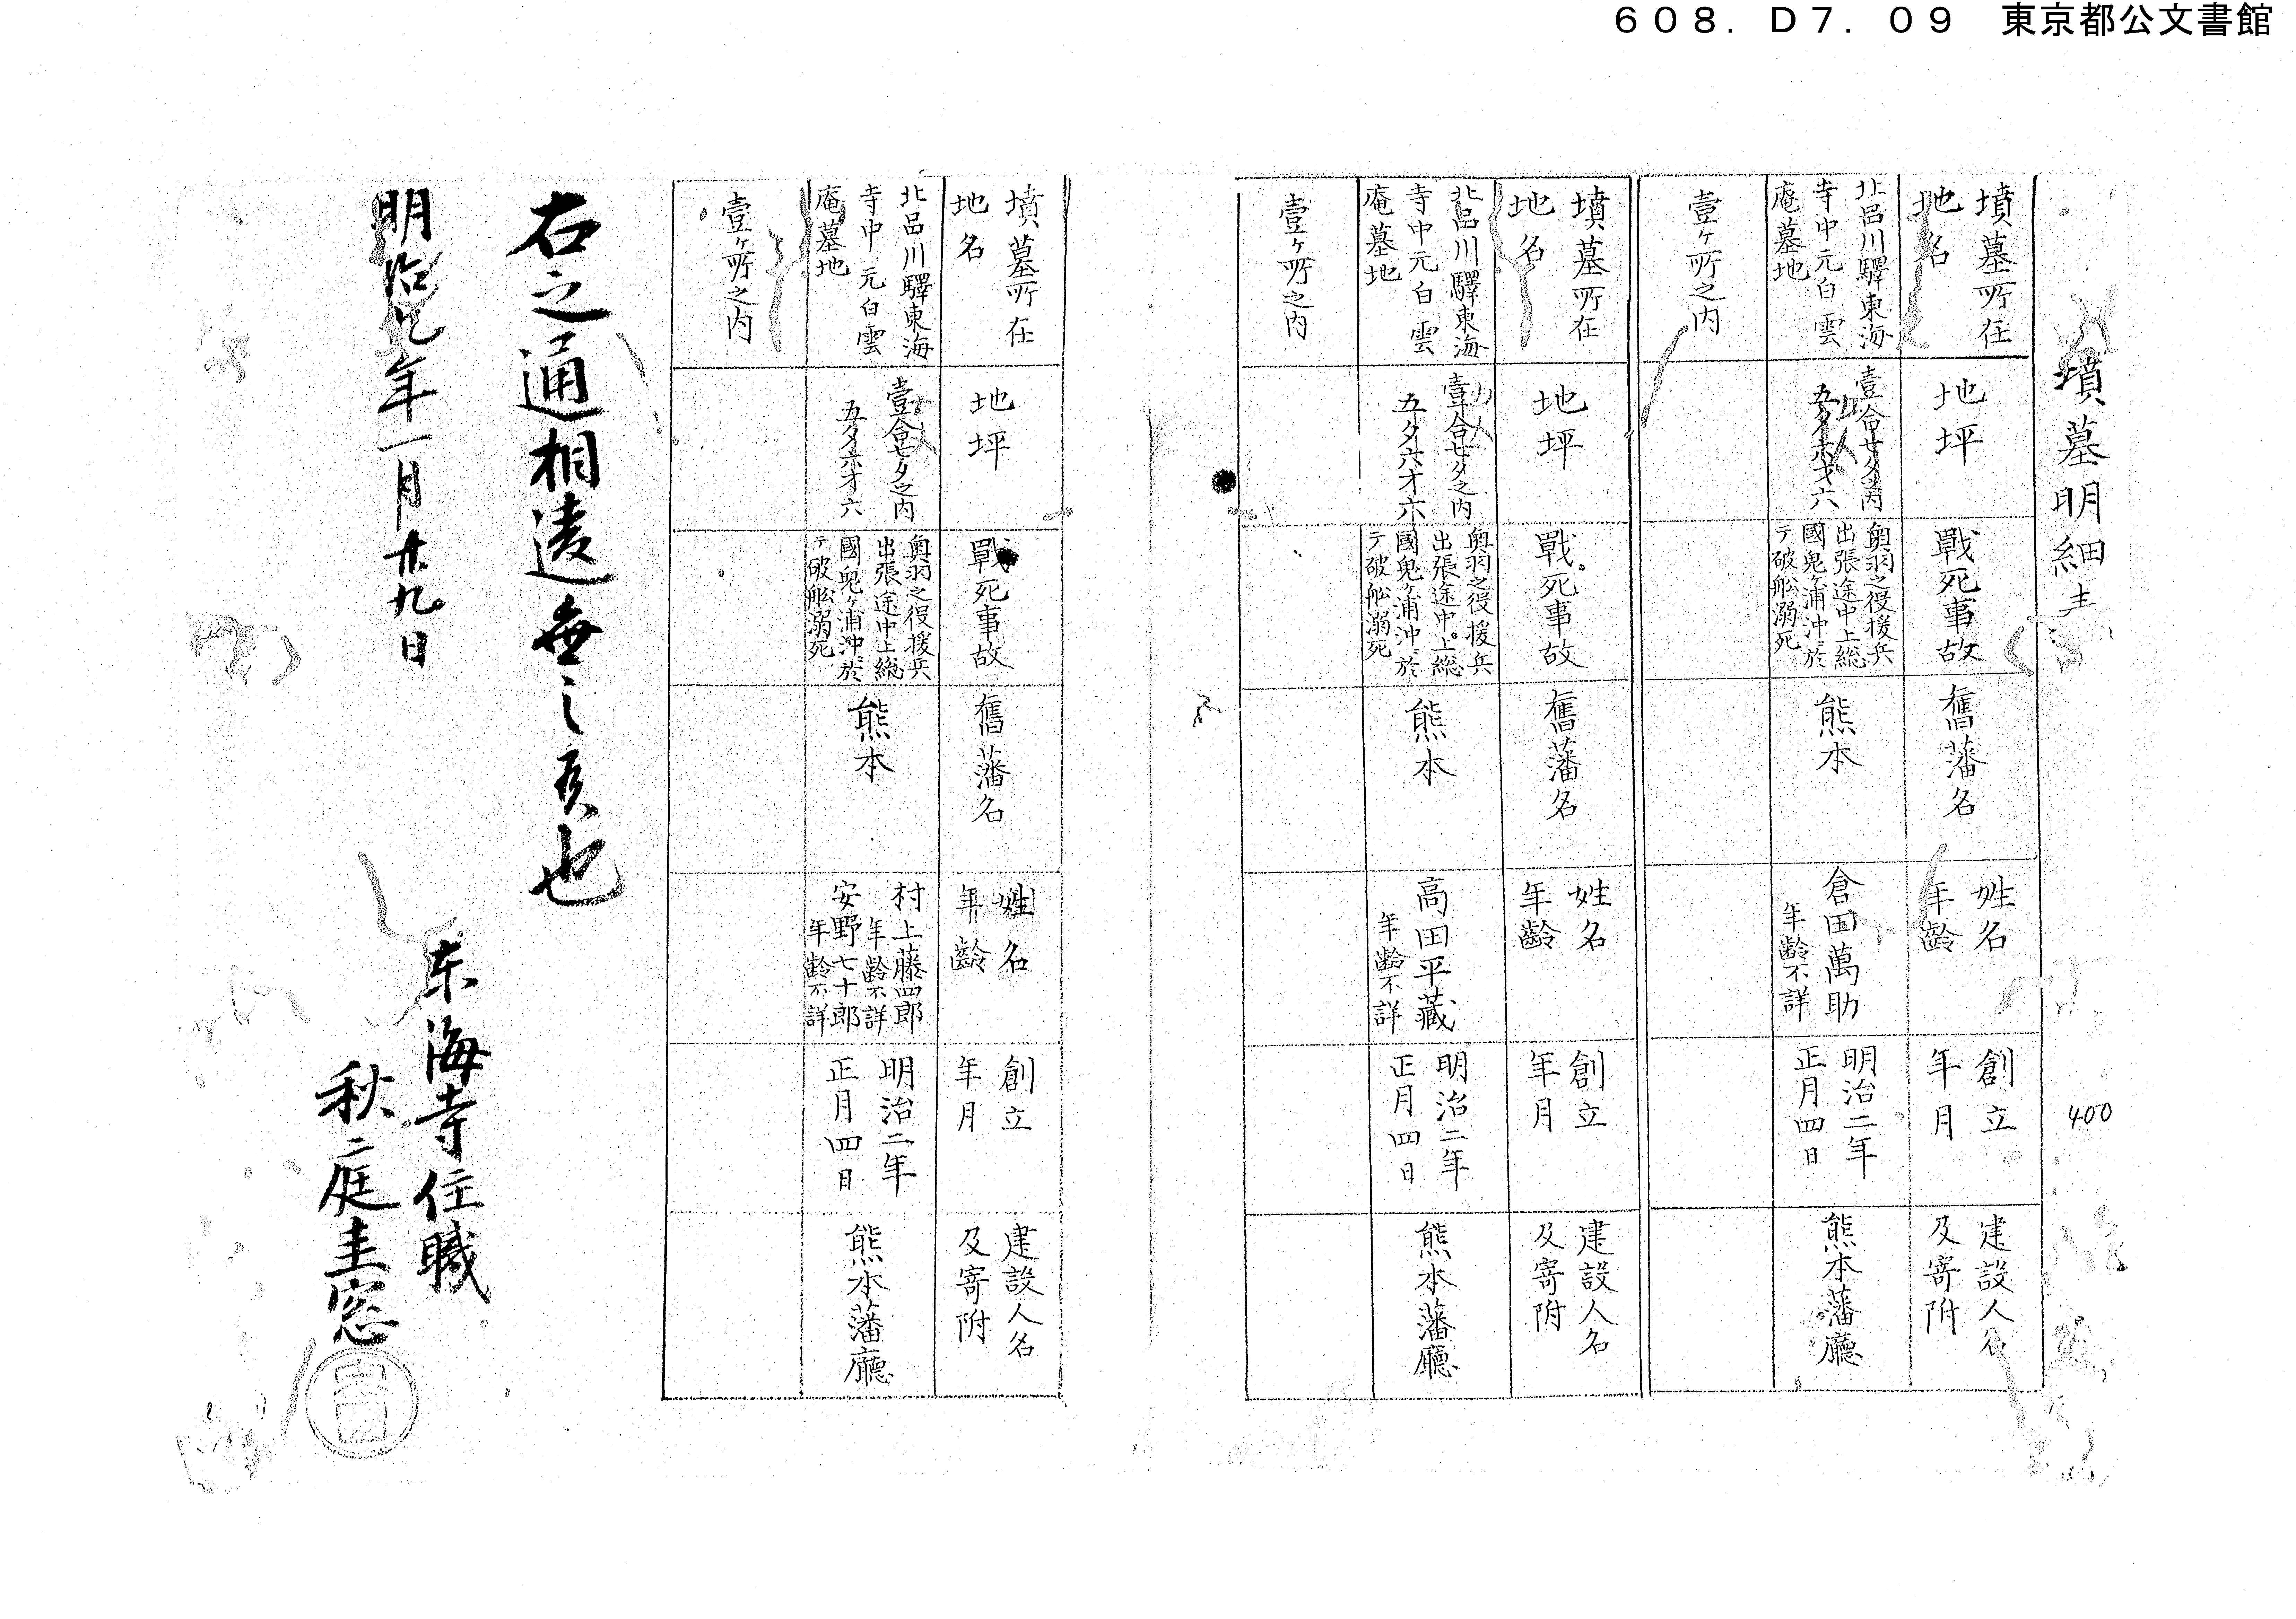 608.D7.09 東京都公文書館
墳墓明細
400
墳墓所在
地名
地坪
戰死事故
舊藩名
姓名
年齢
創立
年月
建設人名
及寄附
北品川驛東海
寺中元白雲
庵墓地
壹合七夕之内
五夕六才六
奥羽之役援兵
出張途中上総
國鬼ヶ浦沖ニ於
テ破舩溺死
熊本
倉田萬助
年齢不詳
明治二年
正月四日
熊本藩廳
壹ヶ所之内
墳墓所在
地名
地坪
戰死事故
舊藩名
姓名
年齢
創立
年月
建設人名
及寄附
北品川驛東海
寺中元白雲
庵墓地
壹合七夕之内
五夕六才六
奥羽之役援兵
出張途中上総
國鬼ヶ浦沖ニ於
テ破舩溺死
熊本
高田平藏
年齢不詳
明治二年
正月四日
熊本藩廳
壹ヶ所之内
墳墓所在
地名
地坪
戰死事故
舊藩名
姓名
年齢
創立
年月
建設人名
及寄附
北品川驛東海
寺中元白雲
庵墓地
壹合七夕之内
五夕六才六
奥羽之役援兵
出張途中上総
國鬼ヶ浦沖ニ於
テ破舩溺死
熊本
村上藤四郎
年齢不詳
安野七十郎
年齢不詳
明治二年
正月四日
熊本藩廳
壹ヶ所之内
右之通相違無之候也
明治九年一月廿九日
東海寺住職
秋庭圭窓